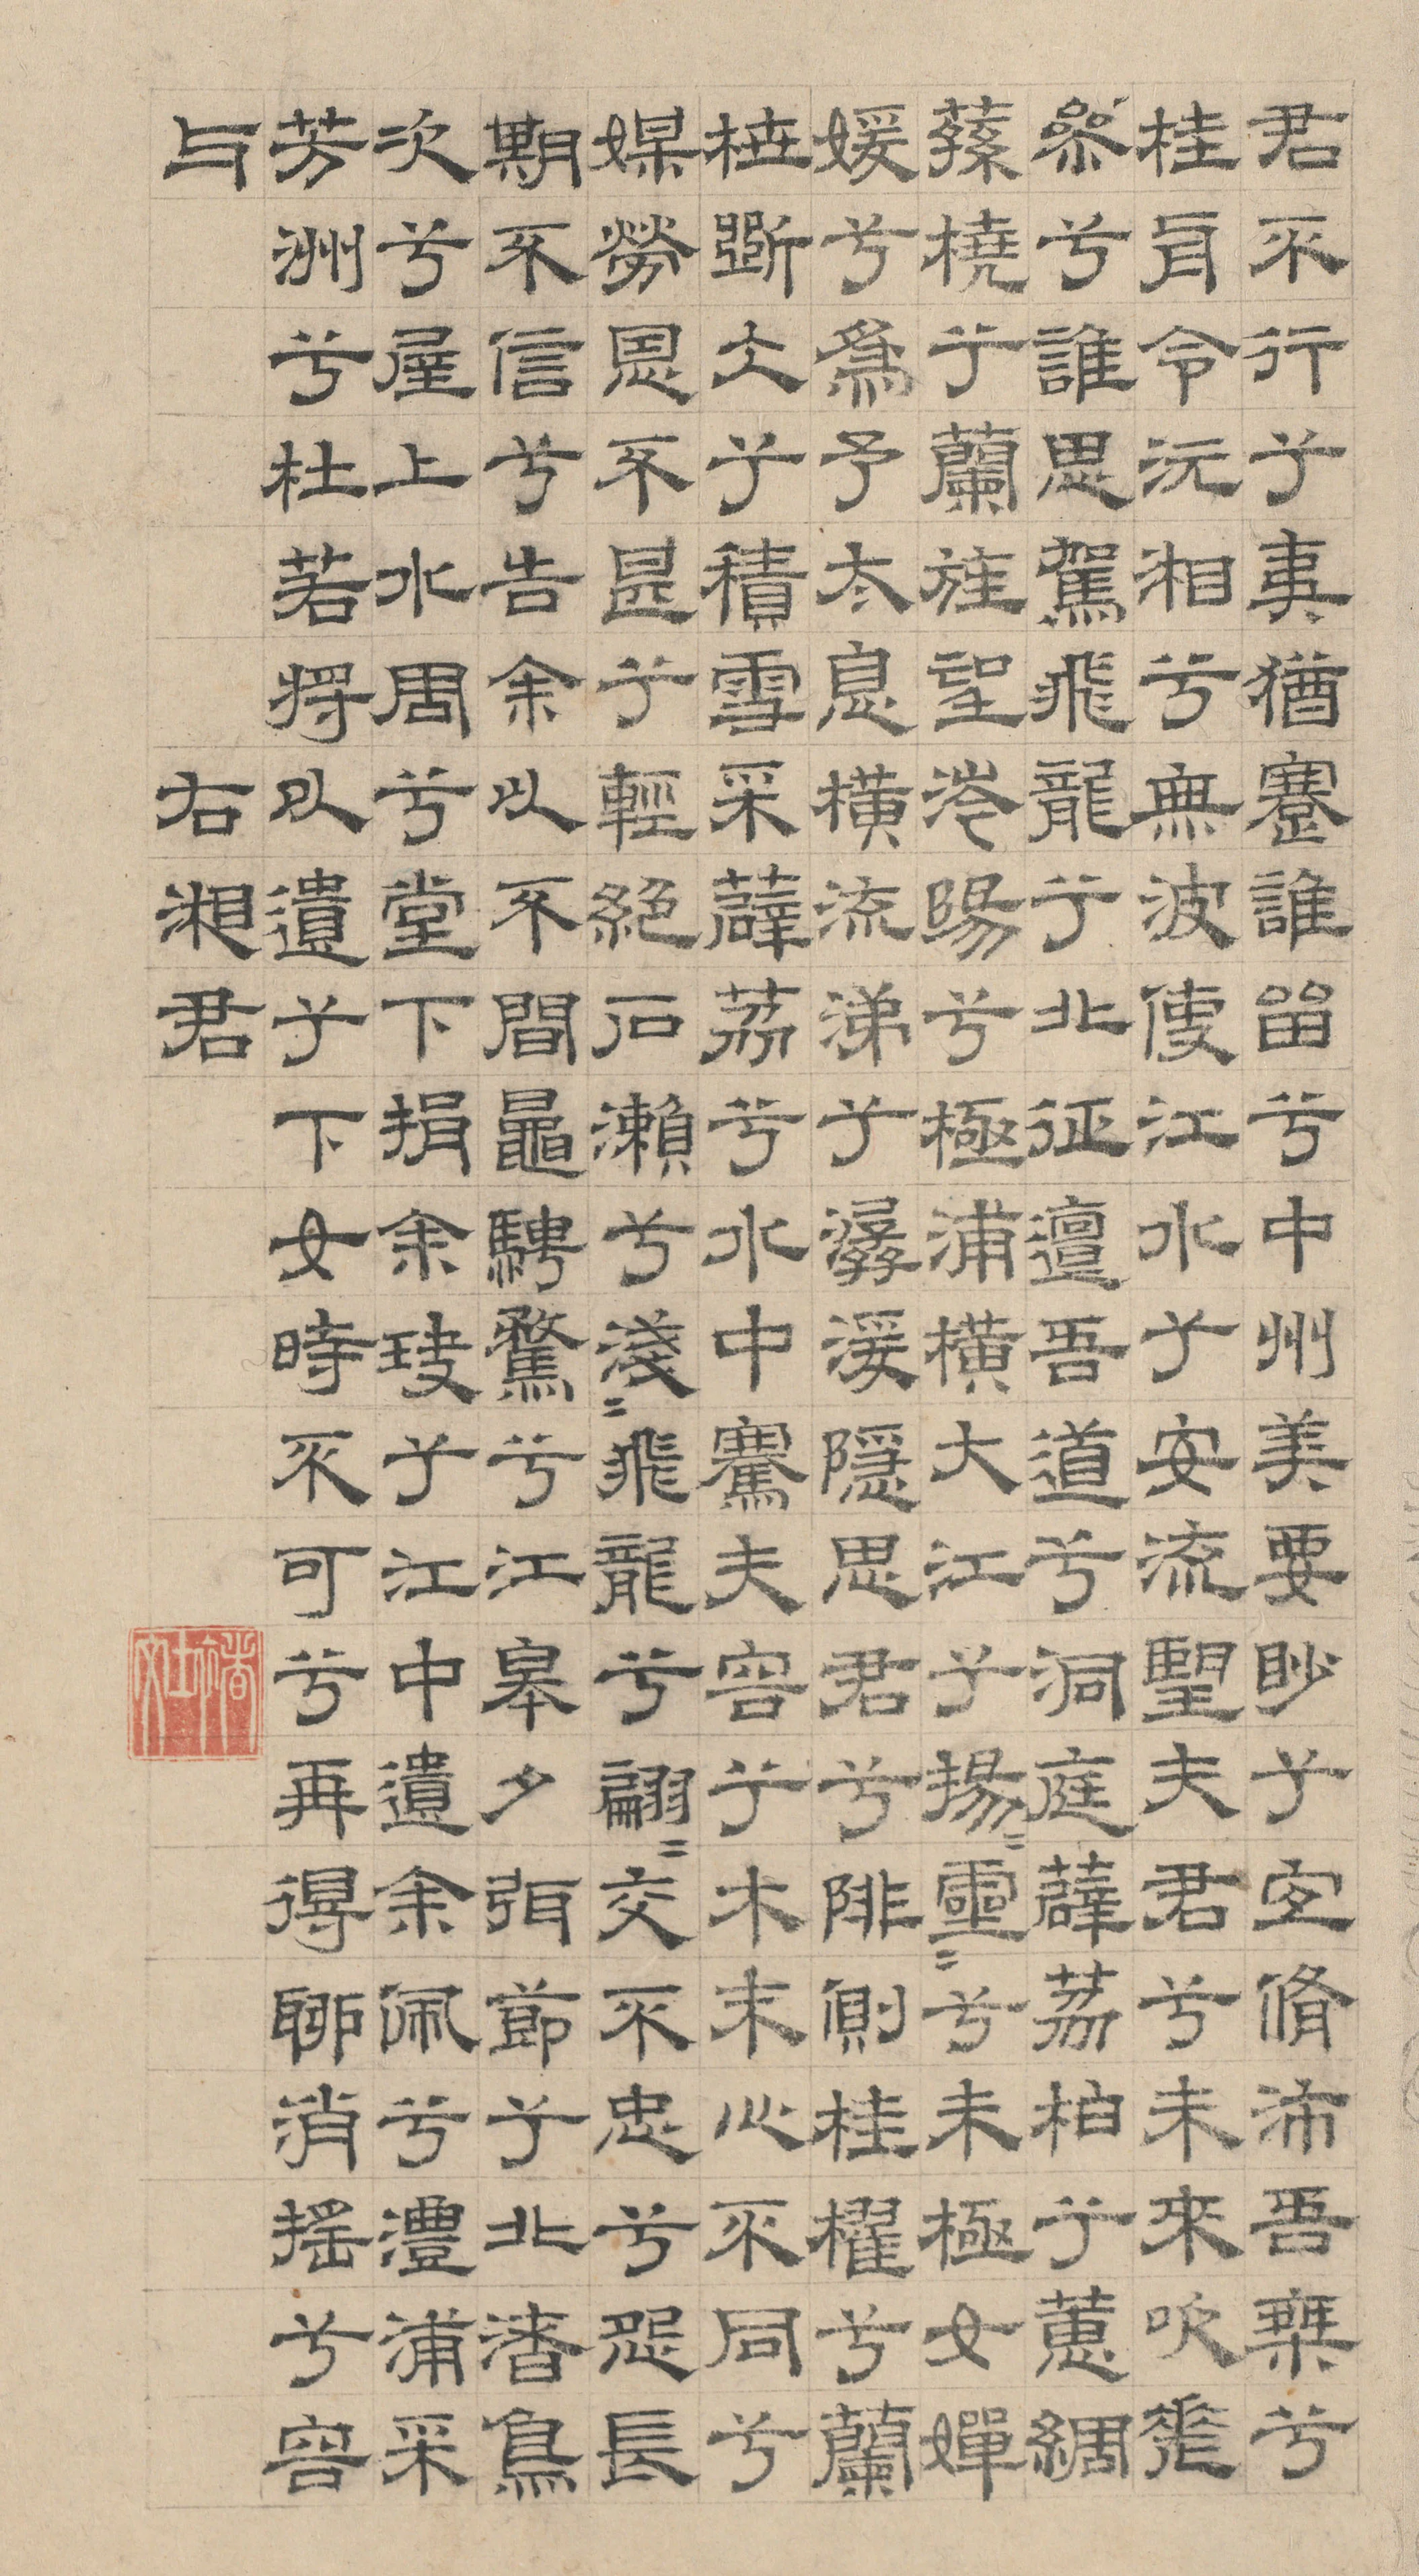 君不行兮夷猶蹇誰畱兮中州美要眇兮宜脩沛吾椉兮
桂舟令沅湘兮無波使江水兮安流望夫君兮未來吹差
參兮誰思駕飛龍兮北征邅吾道兮洞庭薜荔柏兮蕙綢
蓀橈兮蘭旌望涔陽兮極浦橫大江兮揚〻靈〻兮未極女嬋
媛兮爲予太息橫流涕兮潺湲隱思君兮陫側桂櫂兮蘭
枻斲仌兮積雪采薜荔兮水中騫夫容兮木末心不同兮
媒勞恩不甚兮輕絕石瀨兮淺〻飛龍兮翩〻交不忠兮怨長
期不信兮告余以不閒鼂騁騖兮江皋夕弭節兮北渚鳥
次兮屋上水周兮堂下捐余玦兮江中遺余佩兮澧浦采
芳洲兮杜若將以遺兮下女時不可兮再得聊消搖兮容
与
右湘君